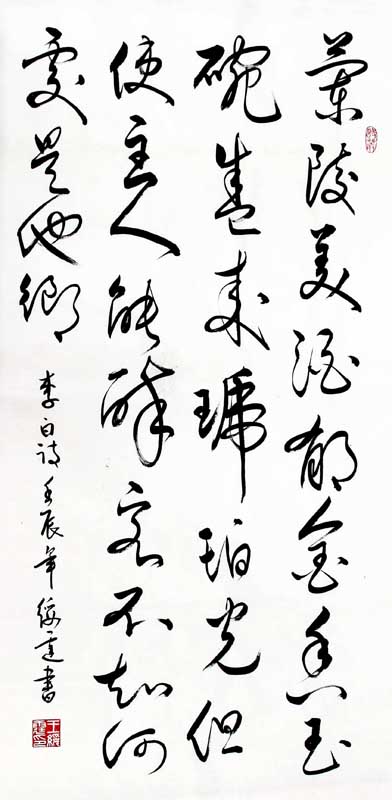 蘭陵美酒郁金香玉
碗盛来琥珀光但
使主人能醉客不知何
處是他鄉
李白詩壬辰年書